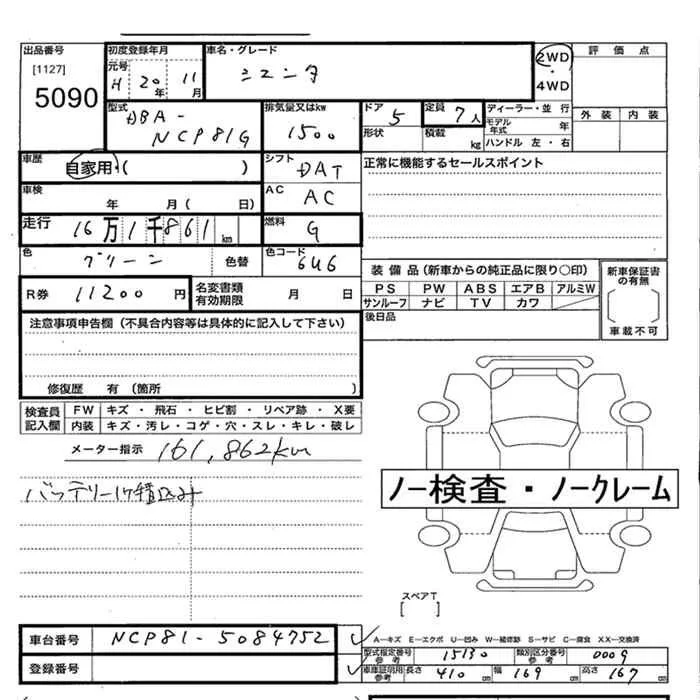 出品番号 初度登録年月 車名・グレード 2WD ・ 4WD 評価点
[1127] 元号 H 20年 11月 シエンタ 外装 内装
5090
型式 DBA-NCP81G 排気量又はkw 1500 ドア 5 定員 7人 ディーラー・並 行
形状 積載 kg モデル年式 年
ハンドル 左・右
車歴 自家用・( ) シフト DAT 正常に機能するセールスポイント
車検 年 月( 日) AC AC
走行 16万1千861km 燃料 G
色 グリーン 色替 色コード 6U6
R券 11200円 名変書類有効期限 月 日
装備品(新車からの純正品に限り〇印) 新車保証書の有無
PS PW ABS エアB アルミW
サンルーフ ナビ TV カワ
後日品 車載不可
注意事項申告欄(不具合内容等は具体的に記入して下さい)
修復歴 有(箇所 )
検査員記入欄 FW キズ・飛石・ヒビ割・リペア跡・X要
内装 キズ・汚レ・コゲ・穴・スレ・キレ・破レ
メーター指示 161,862km
バッテリー积込み
ノー検査・ノークレーム
スペアT
[ ]
A―キズ E―エクボ U―凹み W―補修跡 S―サビ C―腐食 XX―交換済
車台番号 NCP81-5084752
型式指定番号 参考 15130 類別区分番号 参考 0009
登録番号
車庫証明用 参考 長さ 410cm 幅 169cm 高さ 167cm